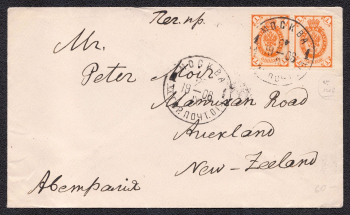 Печ. пр.
Mr.
Peter Moir
Manukan Road
Auckland
New-Zeeland
Австралія
МОСКВА
19 — 06
МОСКВА